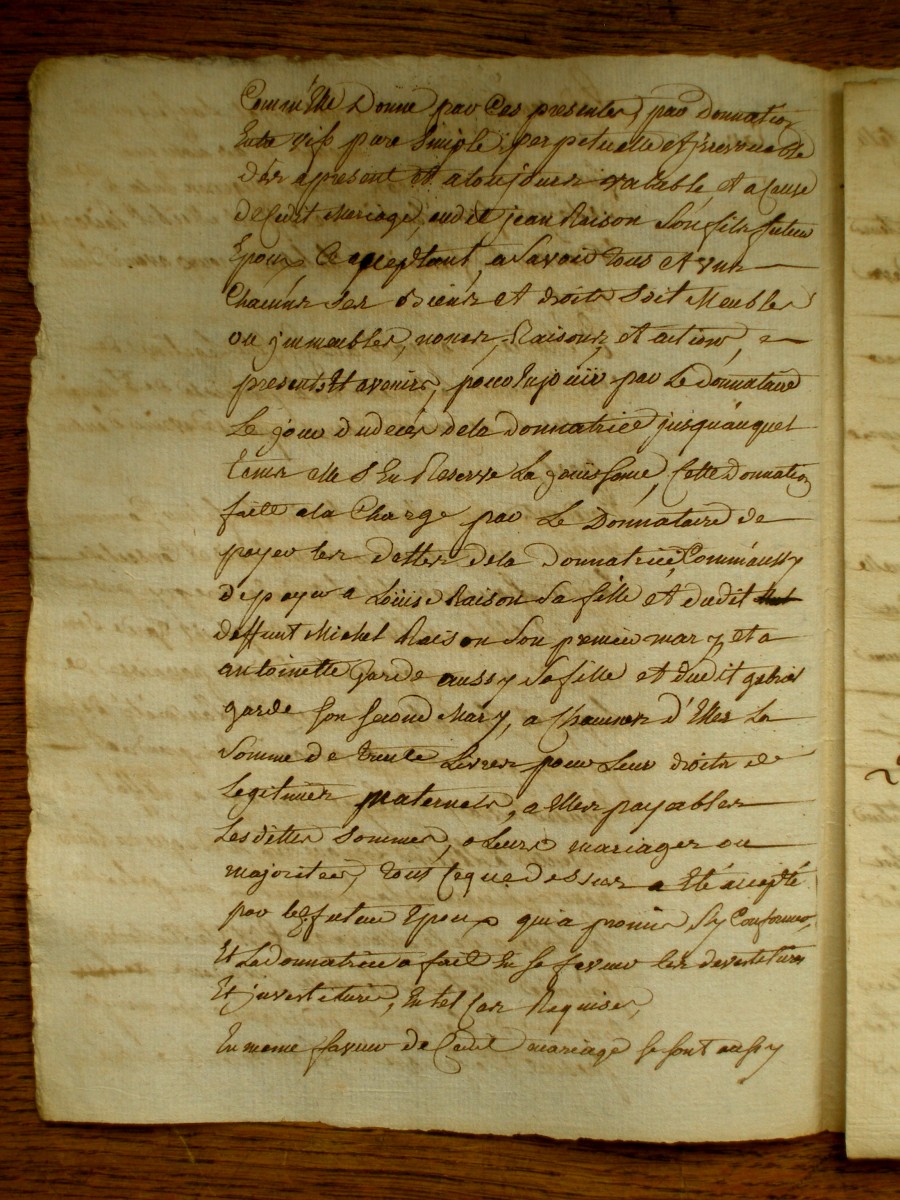 Comm'Elle Donne par Ces presentes, par donnation
Entre vifs pure Simple perpetuelle et jrrevocable
Dès apresent et atoujours valable et a Cause
de Cedit Mariage, audit jean Raison Son fils futeur
Epoux Ce acceptant, a Savoir tous et vns
Chacuns Ses Biens et droits Soit Meubles
ou jmmeubles, noms, Raisons, et actions,
presents Et avenirs, pour En jouïr par Le donnataire
Le jour du decès dela donnatrice jusqu'auquel
tems elle S'En Reserve La jouissance, Cette Donnation
faitte ala Charge par Le Donnataire de
payer les dettes dela donnatrice, Comm'aussy
de payer a Loüise Raison Sa fille et dudit
deffunt Michel Raison Son premier mary, et a
antoinette Garde aussy Sa fille et dudit gabriel
garde Son Second Mary, a Chacunes d'Elles La
Somme de trente Livres pour Leur droits de
Legitimes maternels, a Elles payables
Lesdittes Sommes, a Leurs mariages ou
majoritées, tout Ceque dessus a Eté accepté
par le futeur Epoux qui a promis S'y Conformer,
Et La donnatrice a fait En Sa faveur les devestitures
Et jnvestitures, En tel Cas Requises,
En meme faveur de Cedit mariage Se sont aussy